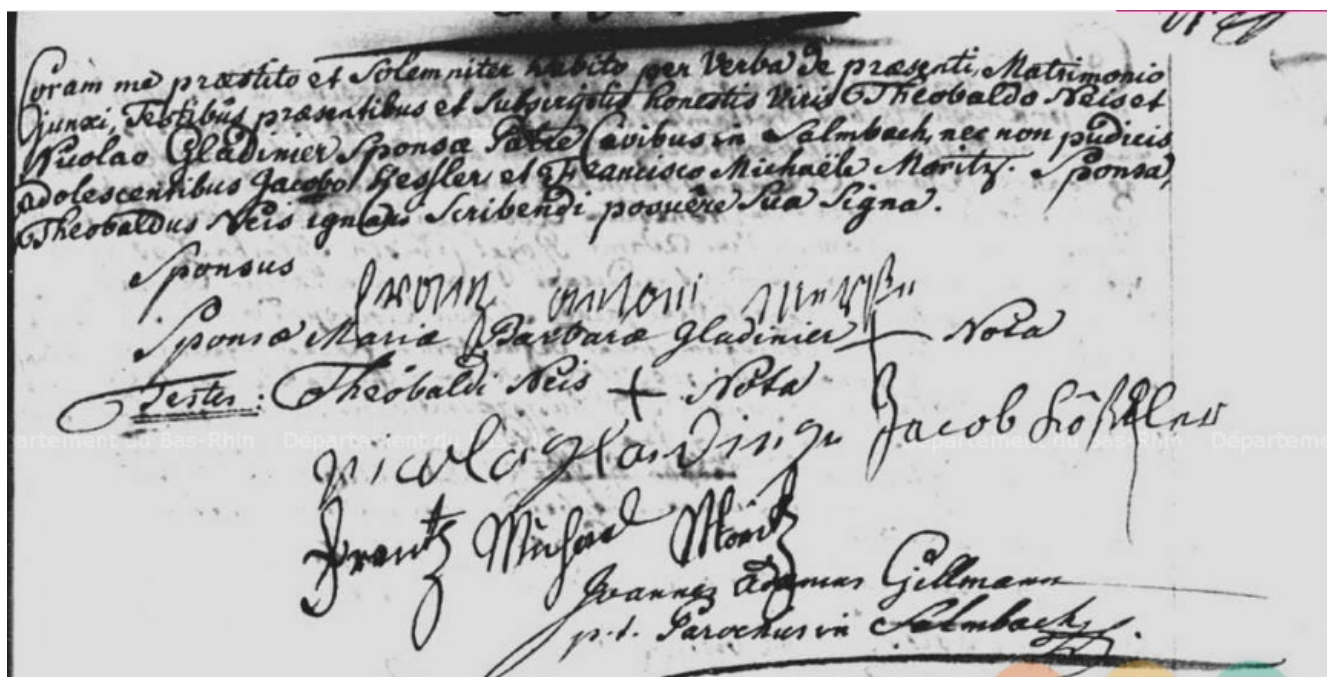 Coram me præstito et Solemniter habito per Verba de præsenti, Matrimonio
junxi, Testibus præsentibus et Subscriptis honestis Viris Theobaldo Neis et
Nicolao Gladinier Sponsæ Patre Civibus in Salmbach, nec non pudicis
adolescentibus Jacobo Hessler et Francisco Michaële Moritz. Sponsa,
Theobaldus Neis ignari Scribendi posuêre Sua Signa.
Sponsus
Frantz antoni
Sponsæ Mariæ Barbaræ Gladinier + Nota
Testes: Theobaldi Neis + Nota
Jacob
nicola
Frantz Michael Moritz
Joannes Adamus Gillmann
p.t. Parochus in Salmbach.
Département du Bas-Rhin